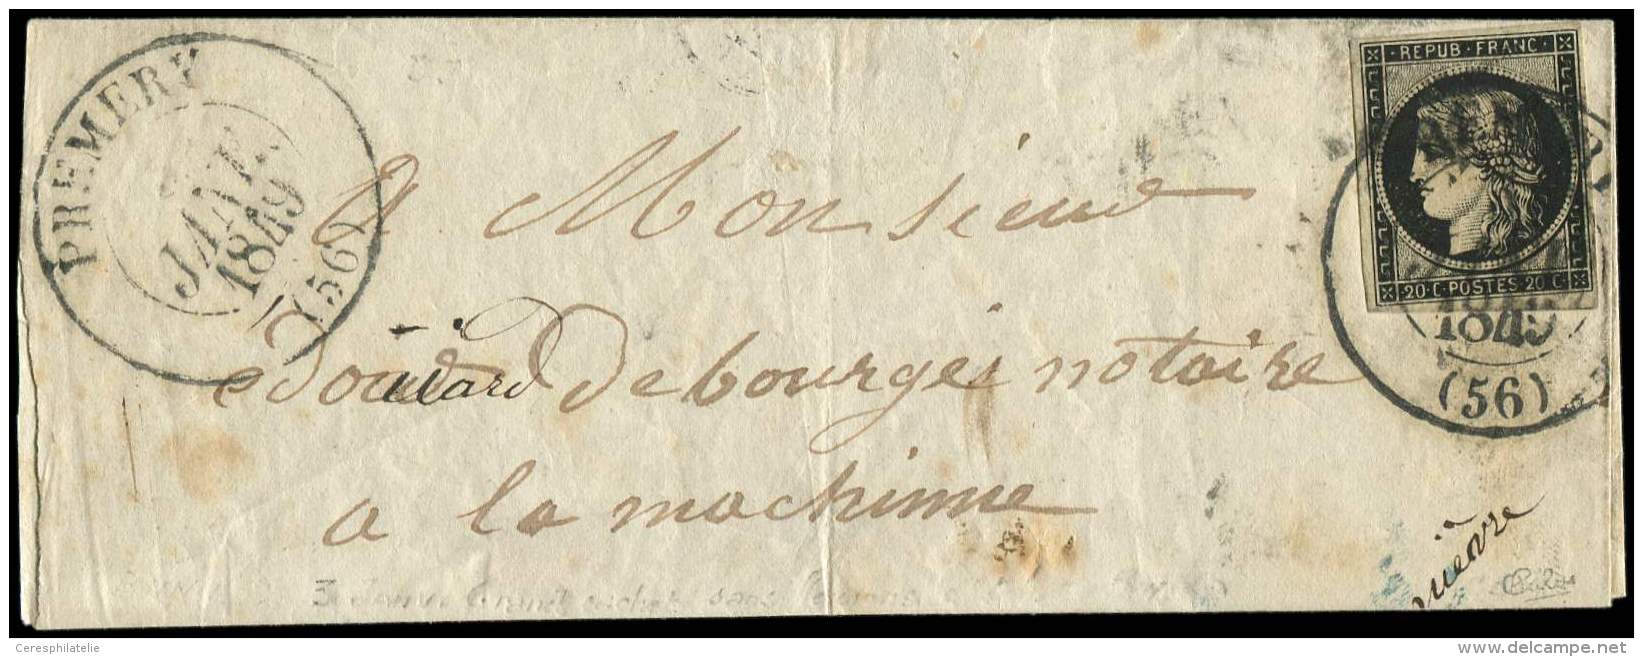 PREMERY
JANV.
1849
(56)
REPUB · FRANC ·
20 · C · POSTES · 20 · C ·
1849
(56)
A Monsieur
edouard Debourges notaire
a la machinne
nièvre
Ceresphilatelie
www.delcampe.net